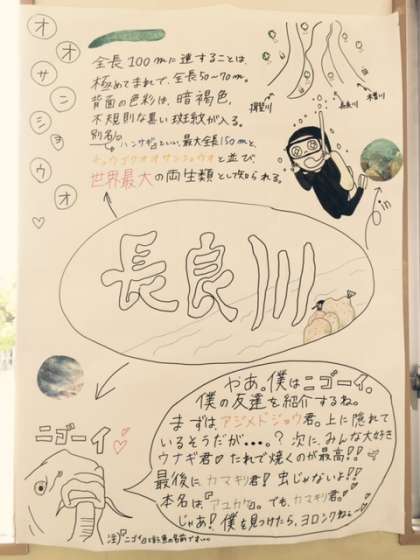 オオサンショウウオ♡
全長100mに達することは、
極めてまれで、全長50〜70m。
背面の色彩は、暗褐色、
不規則な黒い斑紋が入る。
別名。
ハンザキといい、最大全長150mと、
チュウゴクオオサンショウウオと並び、
世界最大の両生類として知られる。
揖斐川
長良川
木曽川
in
長良川
ニゴーイ♡
やあ。僕はニゴーイ。
僕の友達を紹介するね。
まずはアジメドジョウ君。上に隠れて
いるそうだが・・・・。?次に、みんな大好き
ウナギ君♡たれで焼くのが最高!!
最後にカマキリ君!虫じゃないよ!!
本名は『アユカケ』。でも、カマキリ君!
じゃあ!僕を見つけたら、ヨロシクねぇ〜